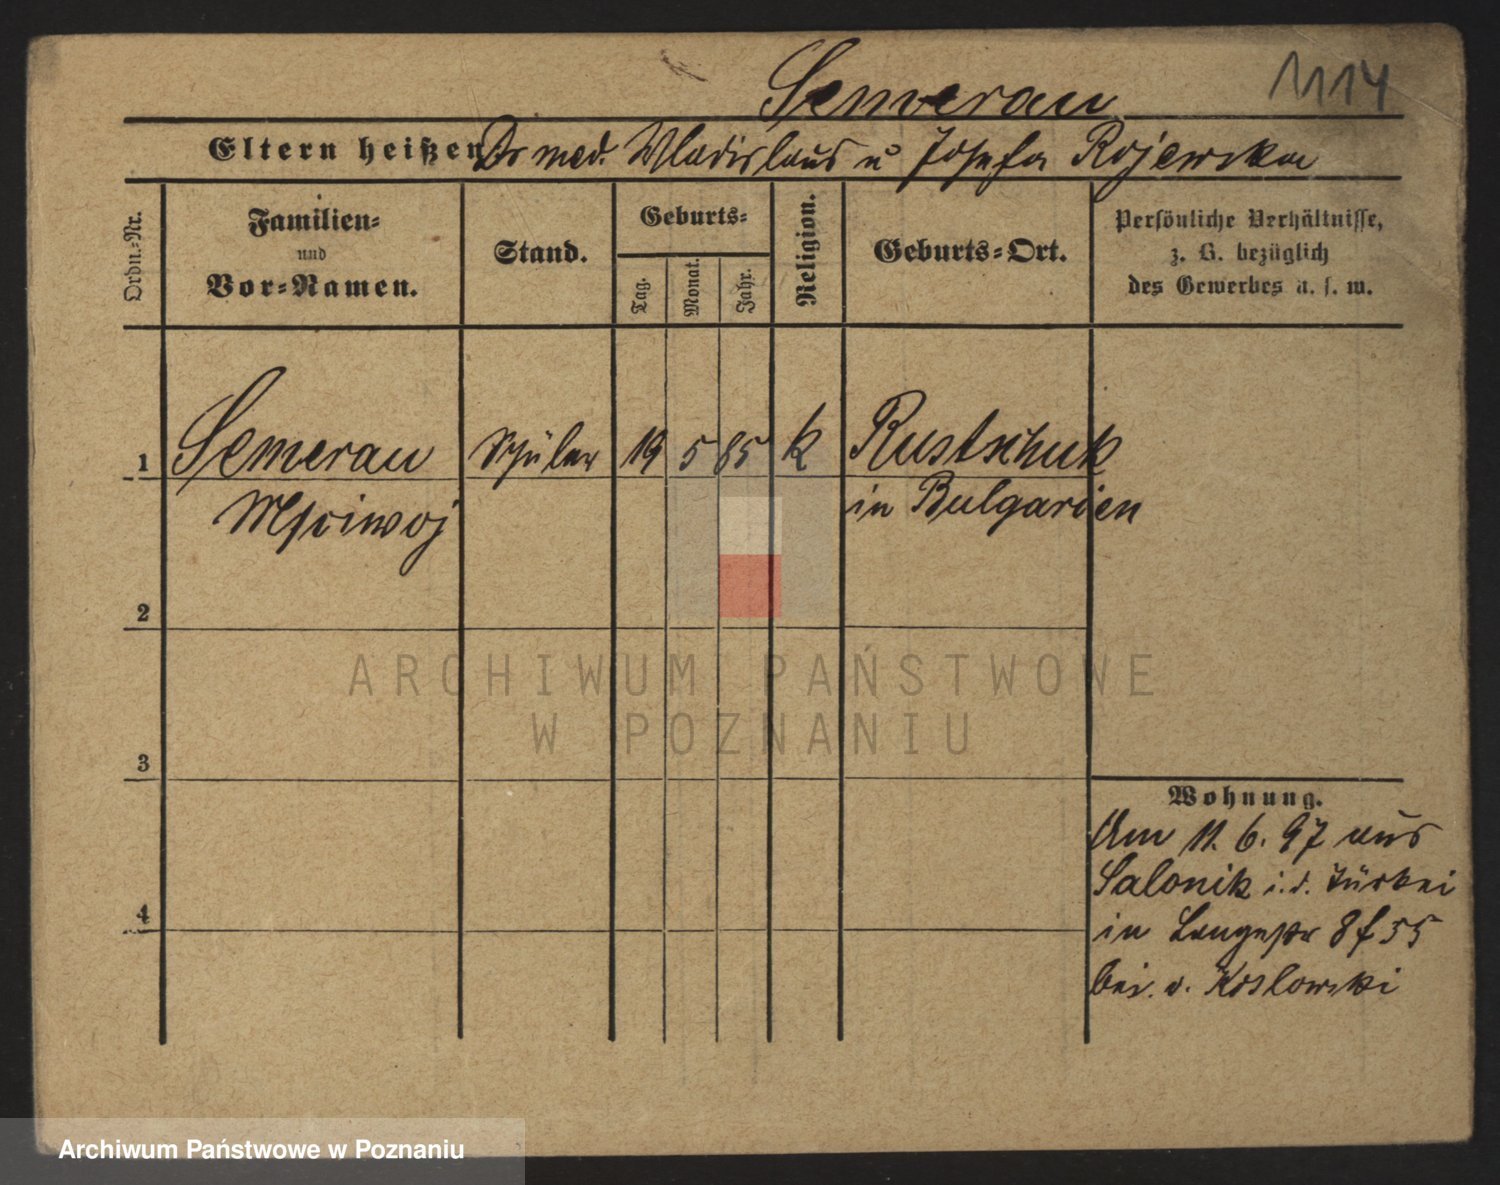 Semerau
1114
Eltern heißen Dr med. Wladislaus u Josefa Rojewska
Ordn.-Nr.
Familien-
und
Vor-Namen.
Stand.
Geburts-
Tag.
Monat.
Jahr.
Religion.
Geburts-Ort.
Persönliche Verhältnisse,
z. B. bezüglich
des Gewerbes u. s. w.
1 Semerau Schüler 19 5 85 k Rustschuk
Msciwoj in Bulgarien
2
ARCHIWUM PAŃSTWOWE
W POZNANIU
3
Wohnung.
Am 11. 6. 97 aus
Salonik i. d. Türkei
in Langestr 8 f 55
bei v. Koslowski
4
Archiwum Państwowe w Poznaniu